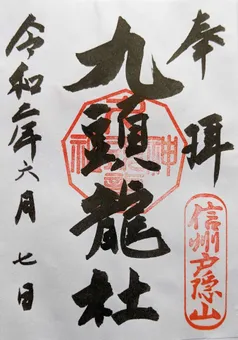 奉拝
信州戸隠山
九頭龍社
令和二年六月七日